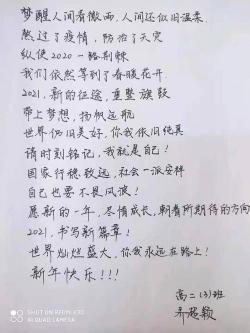 梦醒人间看微雨，人间还似旧温柔
熬过了疫情，防治了天灾
纵使2020一路荆棘
我们依然等到了春暖花开
2021，新的征途，重整旗鼓
带上梦想，扬帆远航
世界仍旧美好，你我依旧纯真
请时刻铭记，我就是自己！
国家行稳致远，社会一派安祥
自己也要不畏风浪！
愿新的一年，尽情成长，朝着所期待的方向
2021，书写新篇章！
世界灿烂盛大，你我永远在路上！
新年快乐！！！
高二（3）班
SHOT ON REDMI
AI QUAD CAMERA